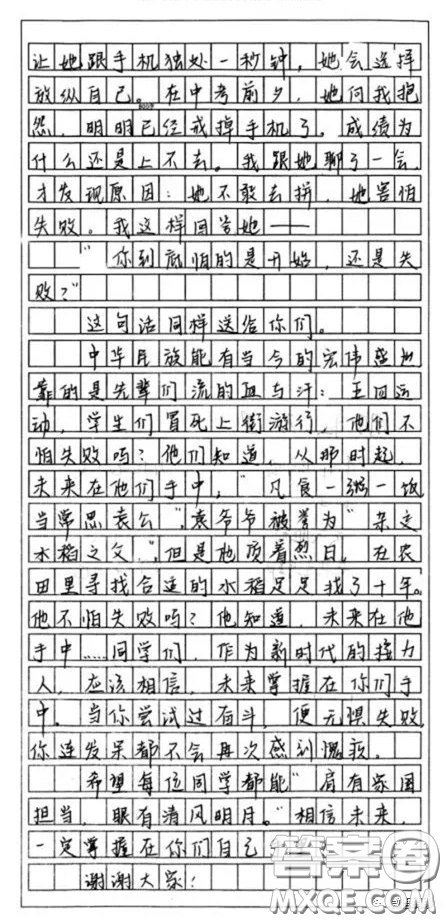 让她跟手机独处一秒钟，她会选择
放纵自己。在中考前夕，她向我抱
怨，明明已经戒掉手机了。成绩为
什么还是上不去。我跟她聊了一会，
才发现原因：她不敢去拼，她害怕
失败。我这样回答她——
"你到底怕的是开始，还是失
败？"
这句话同样送给你们。
中华民族能有当今的宏伟盛世
靠的是先辈们流的血与汗：五四运
动，学生们冒死上街游行，他们不
怕失败吗？他们知道，从那时起，
未来在他们手中，"凡食一粥一饭
当常思袁公"，袁爷爷被誉为"杂交
水稻之父"，但是他顶着烈日，在农
田里寻找合适的水稻足足找了十年。
他不怕失败吗？他知道，未来在他
手中……同学们，作为新时代的接力
人，应该相信，未来掌握在你们手
中。当你尝试过奋斗，便无惧失败，
你连发呆都不会再次感到愧疚。
希望每位同学都能"肩有家国
担当，眼有清风明月。"相信未来，
一定掌握在你们自己
谢谢大家！
答案圈
MXQE.COM